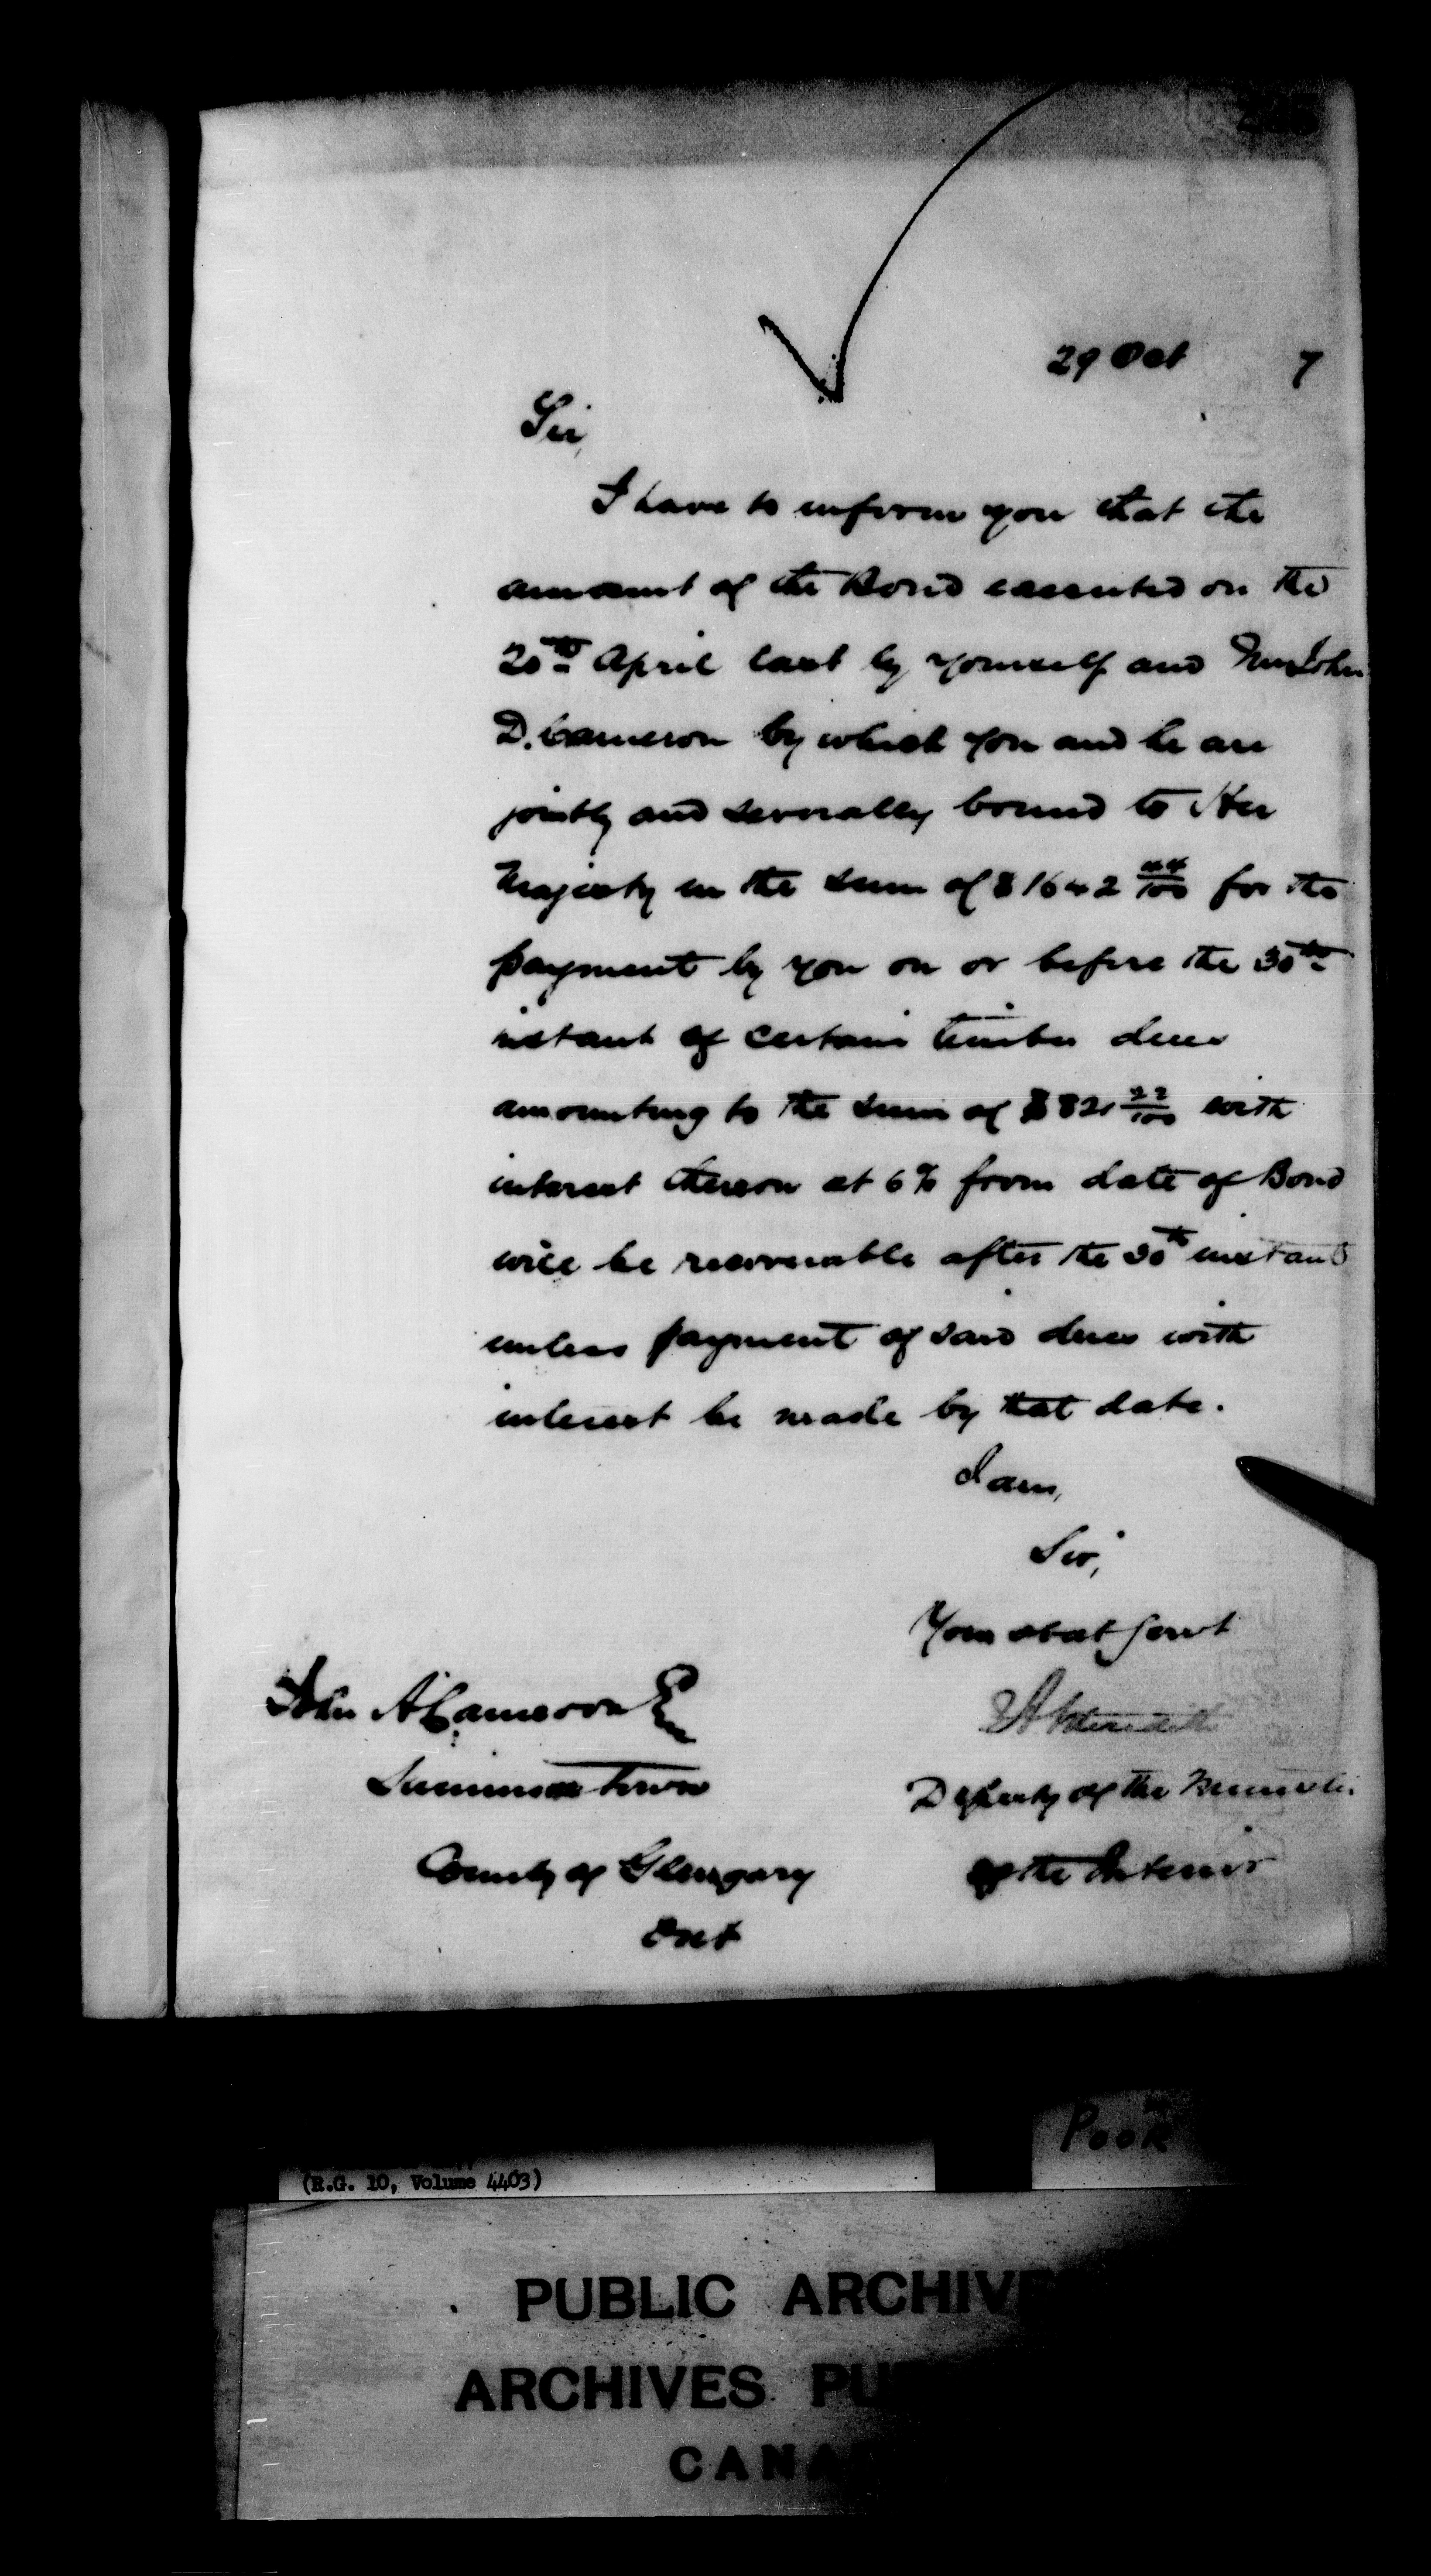 29 Oct 7
Sir,
I have to inform you that the
amount of the Bond executed on the
20th April last by yourself and Mr John
D. Cameron by which you and he are
jointly and severally bound to Her
Majesty in the sum of $1642 44/100 for the
payment by you on or before the 30th
instant of certain timber dues
amounting to the sum of $821 22/100 with
interest thereon at 6% from date of Bond
will be recoverable after the 30th instant
unless payment of said dues with
interest be made by that date.
I am,
Sir,
Your obdt Servt
John A Cameron Esq
EA Meredith
Summerstown
Deputy of the Minister
County of Glengary
of the Interior
Ont
Poor
(R.G. 10, Volume 4403)
PUBLIC ARCHIVE
ARCHIVES PU
CANA